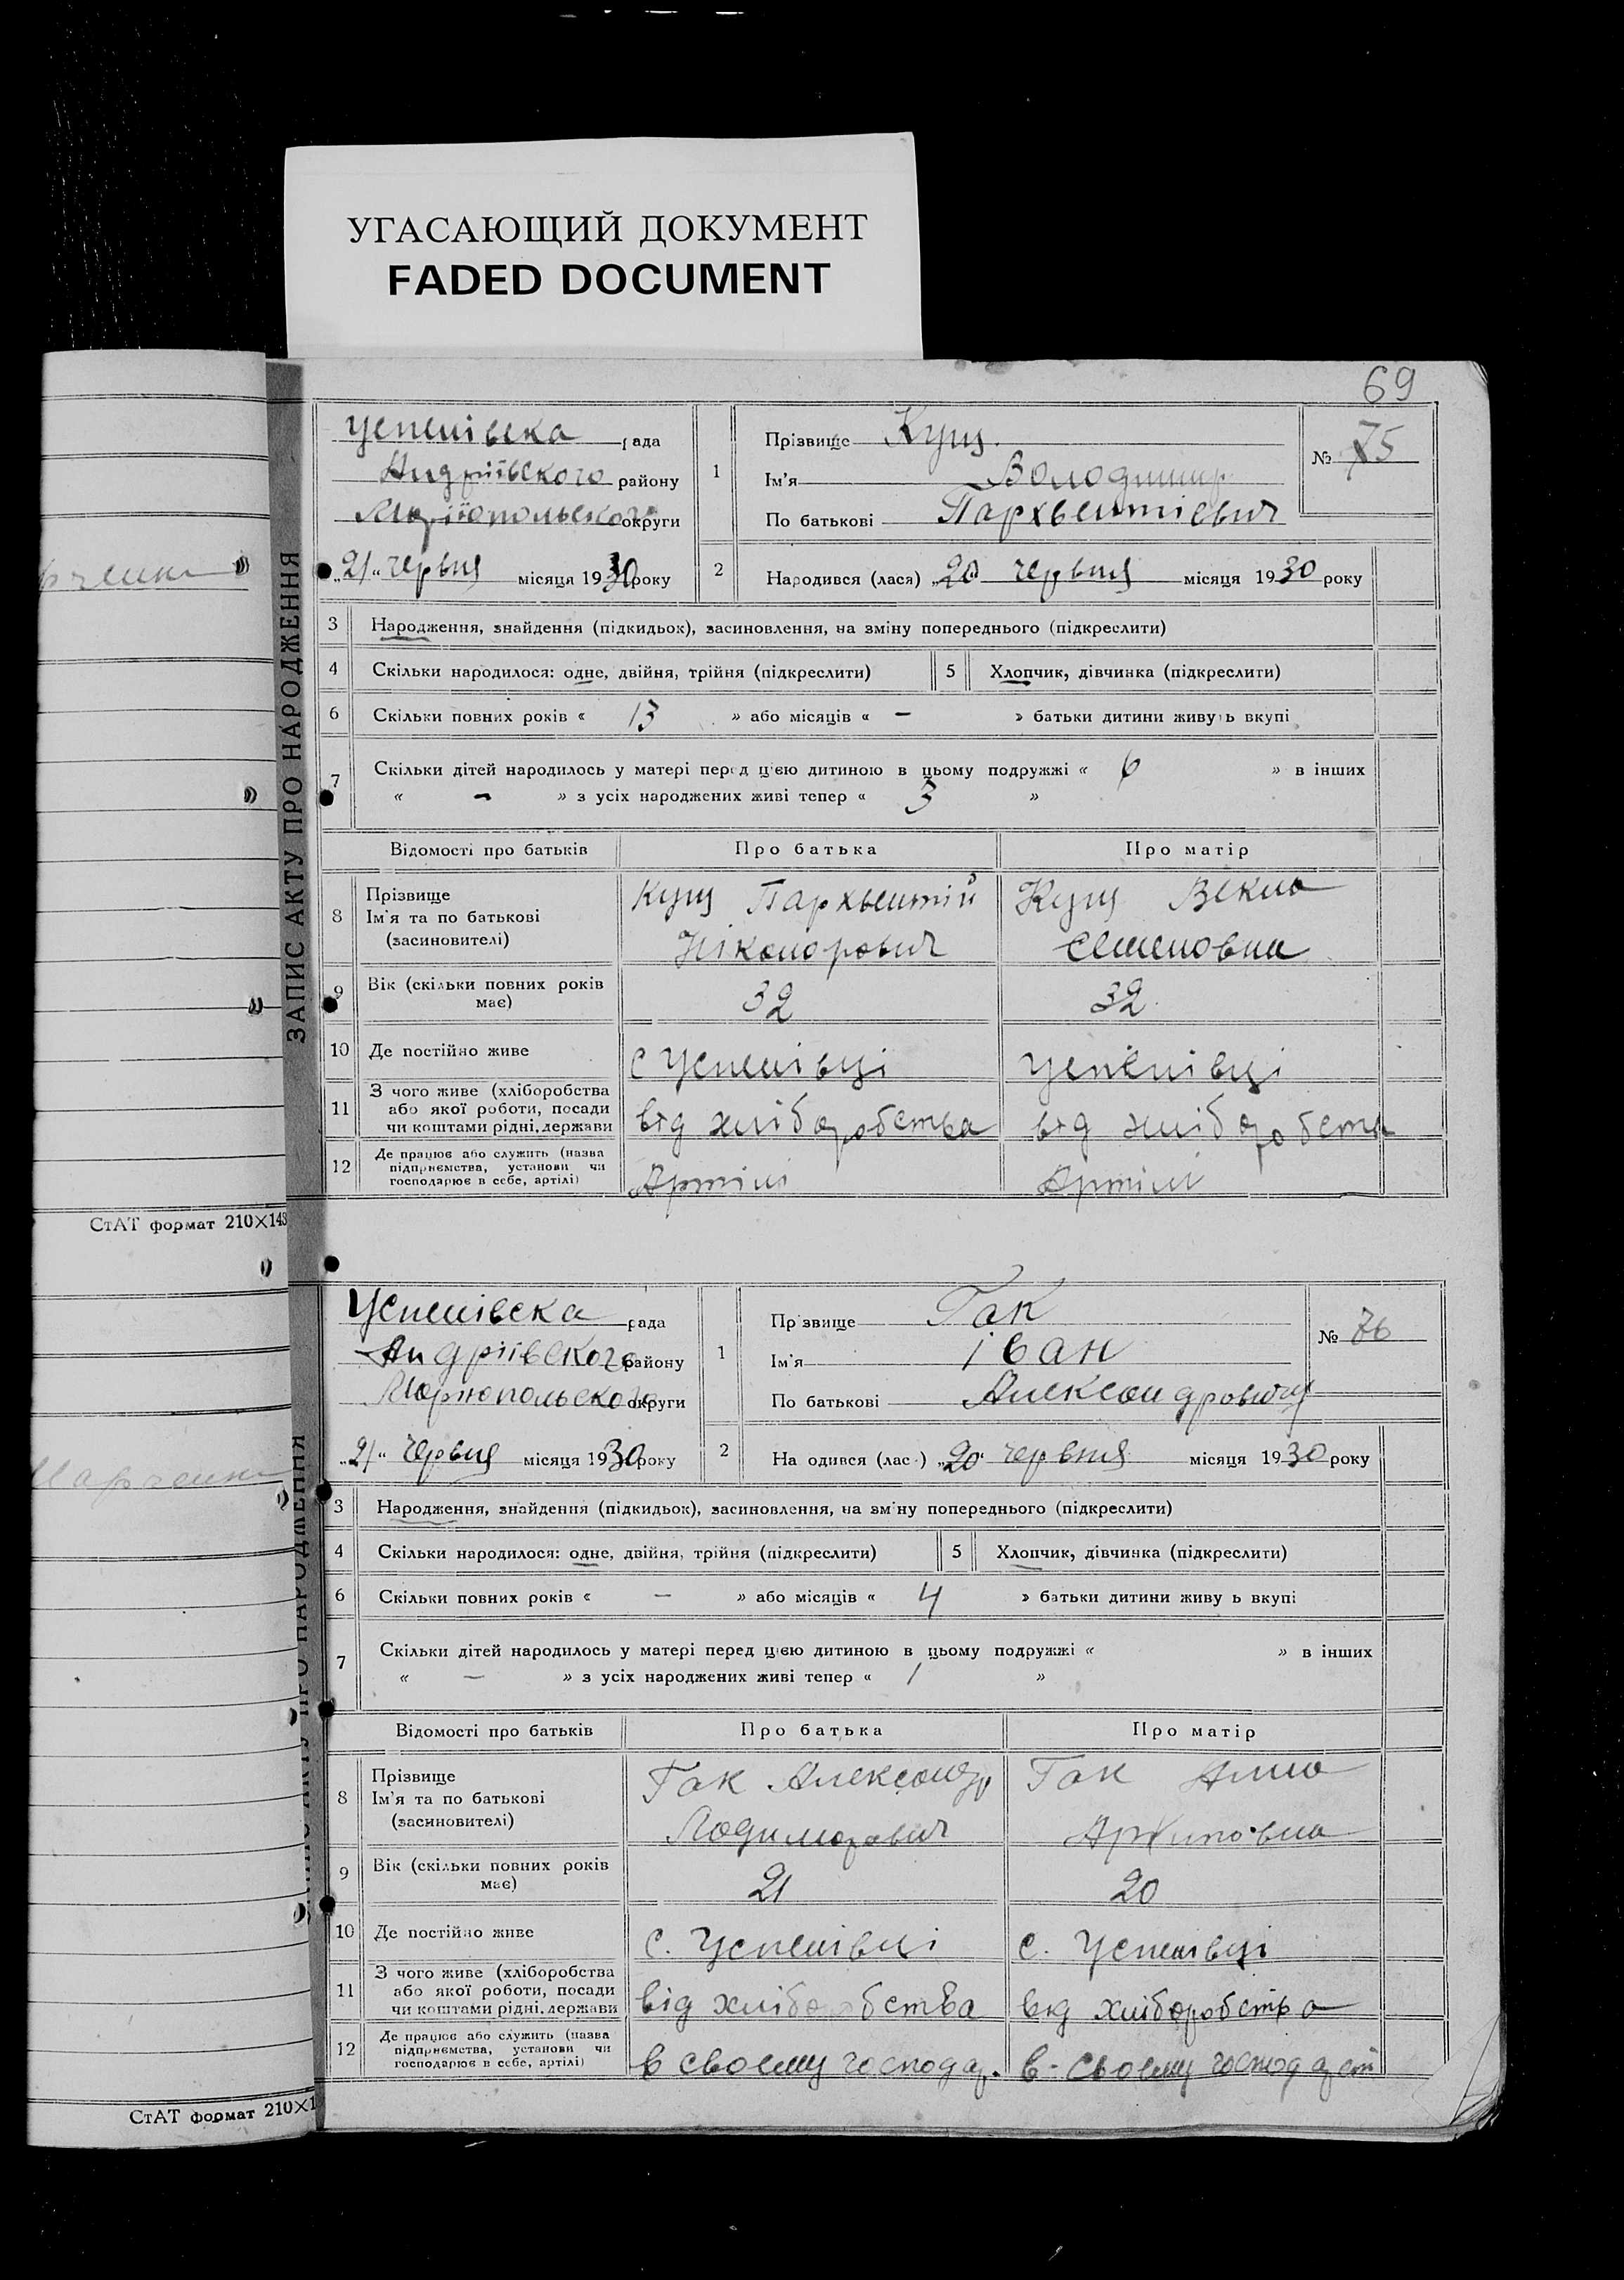 УГАСАЮЩИЙ ДОКУМЕНТ
FADED DOCUMENT
69
ЗАПИС АКТУ ПРО НАРОДЖЕННЯ
Успенівска рада
Андріївского району
Маріюпольского округи
„21" червня місяця 1930 року
1 Прізвище Кущ.
Ім'я Володимир
По батькові Пархвентіевич
№ 75
2 Народився (лася) „20" червня місяця 1930 року
3 Народження, знайдення (підкидьок), засиновлення, на зміну попереднього (підкреслити)
4 Скільки народилося: одне, двійня, трійня (підкреслити) 5 Хлопчик, дівчинка (підкреслити)
6 Скільки повних років « 13 » або місяців « – » батьки дитини живуть вкупі
7 Скільки дітей народилось у матері перед цією дитиною в цьому подружжі « 6 » в інших
« – » з усіх народжених живі тепер « 3 »
Відомості про батьків Про батька Про матір
8 Прізвище
Ім'я та по батькові
(засиновителі)
Кущ Пархвентій
Ніканорович
Кущ Векла
Семеновна
9 Вік (скільки повних років має) 32 32
10 Де постійно живе с Успенівці Успенівці
11 З чого живе (хліборобства
або якої роботи, посади
чи коштами рідні, держави
від хліборобства від хліборобства
12 Де працює або служить (назва
підприємства, установи чи
господарює в себе, артілі)
Артілі Артілі
СтАТ формат 210×148
Успенівска рада
Андріївского району
Маріюпольского округи
„21" червня місяця 1930 року
1 Прізвище Гак
Ім'я іван
По батькові Александрович
№ 76
2 Народився (лася) „20" червня місяця 1930 року
3 Народження, знайдення (підкидьок), засиновлення, на зміну попереднього (підкреслити)
4 Скільки народилося: одне, двійня, трійня (підкреслити) 5 Хлопчик, дівчинка (підкреслити)
6 Скільки повних років « – » або місяців « 4 » батьки дитини живуть вкупі
7 Скільки дітей народилось у матері перед цією дитиною в цьому подружжі « » в інших
« – » з усіх народжених живі тепер « 1 »
Відомості про батьків Про батька Про матір
8 Прізвище
Ім'я та по батькові
(засиновителі)
Гак Александр
Гак Анна
Архиповна
9 Вік (скільки повних років має) 21 20
10 Де постійно живе с. Успенівці с. Успенівці
11 З чого живе (хліборобства
або якої роботи, посади
чи коштами рідні, держави
від хліборобства від хліборобства
12 Де працює або служить (назва
підприємства, установи чи
господарює в себе, артілі)
в своєму господар. в своєму господарст
СтАТ формат 210×1